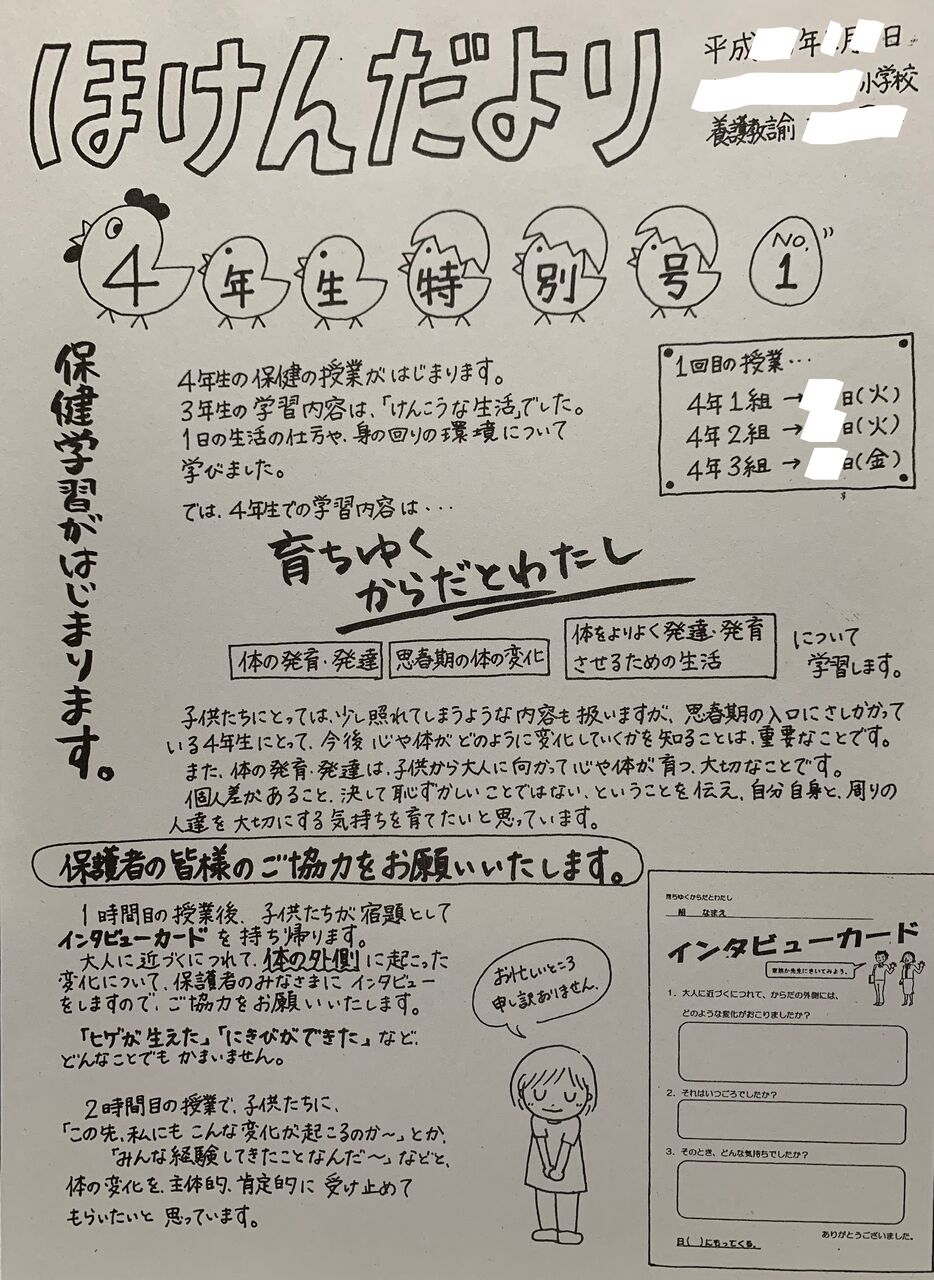 ほけんだより
平成 年 月 日
小学校
養護教諭
4年生特別号 No.1
保健学習がはじまります。
4年生の保健の授業がはじまります。
3年生の学習内容は、「けんこうな生活」でした。
1日の生活の仕方や、身の回りの環境について
学びました。
では、4年生での学習内容は・・・
1回目の授業・・・
4年1組 → 日(火)
4年2組 → 日(火)
4年3組 → 日(金)
育ちゆく
からだとわたし
体の発育・発達
思春期の体の変化
体をよりよく発達・発育
させるための生活
について
学習します。
子供たちにとっては、少し照れてしまうような内容も扱いますが、思春期の入口にさしかかって
いる4年生にとって、今後心や体がどのように変化していくかを知ることは、重要なことです。
また、体の発育・発達は、子供から大人に向かって心や体が育つ、大切なことです。
個人差があること、決して恥ずかしいことではない、ということを伝え、自分自身と、周りの
人達を大切にする気持ちを育てたいと思っています。
保護者の皆様のご協力をお願いいたします。
1時間目の授業後、子供たちが宿題として
インタビューカードを持ち帰ります。
大人に近づくにつれて、体の外側に起こった
変化について、保護者のみなさまにインタビュー
をしますので、ご協力をお願いいたします。
「ヒゲが生えた」「にきびができた」など、
どんなことでもかまいません。
2時間目の授業で、子供たちに、
「この先、私にもこんな変化が起こるのか〜」とか、
「みんな経験してきたことなんだ〜」などと、
体の変化を、主体的、肯定的に受け止めて
もらいたいと思っています。
お忙しいところ
申し訳ありません。
育ちゆくからだとわたし
組 なまえ
インタビューカード
家族か先生にきいてみよう。
1. 大人に近づくにつれて、からだの外側には、
どのような変化がおこりましたか?
2. それはいつごろでしたか?
3. そのとき、どんな気持ちでしたか?
ありがとうございました。
日( )にもってくる。